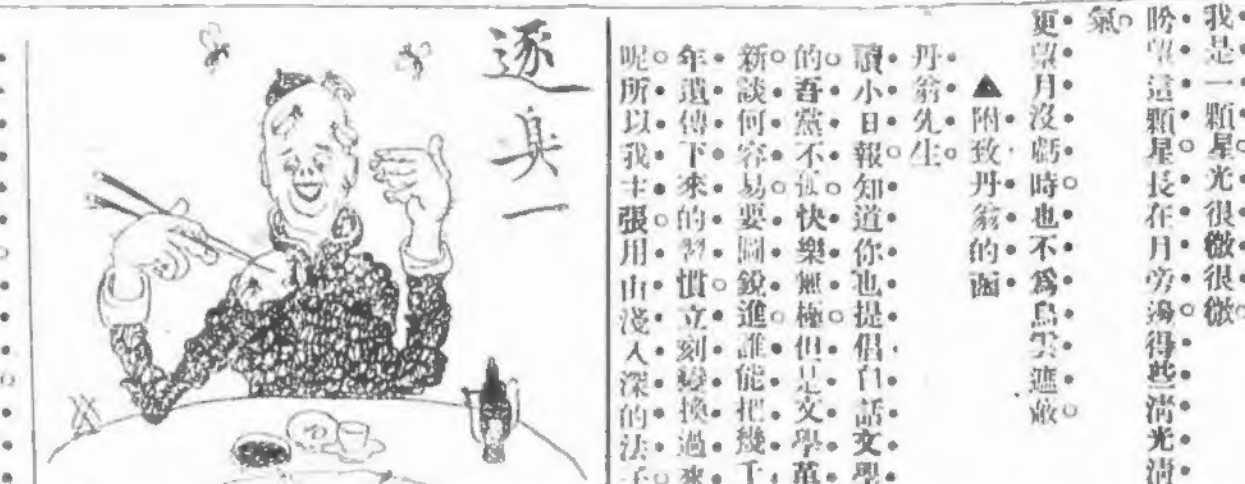 我是一顆星光很微很微
盼望這顆星長在月旁得些清光清
氣
更望月沒虧時也不爲烏雲遮蔽
▲附致丹翁的函
丹翁先生
讀小日報知道你也提倡白話文學
的吾黨不孤快樂無極但是文學革
新談何容易要圖銳進誰能把幾千
年遺傳下來的習慣立刻變換過來
呢所以我主張用由淺入深的法子
逐臭一